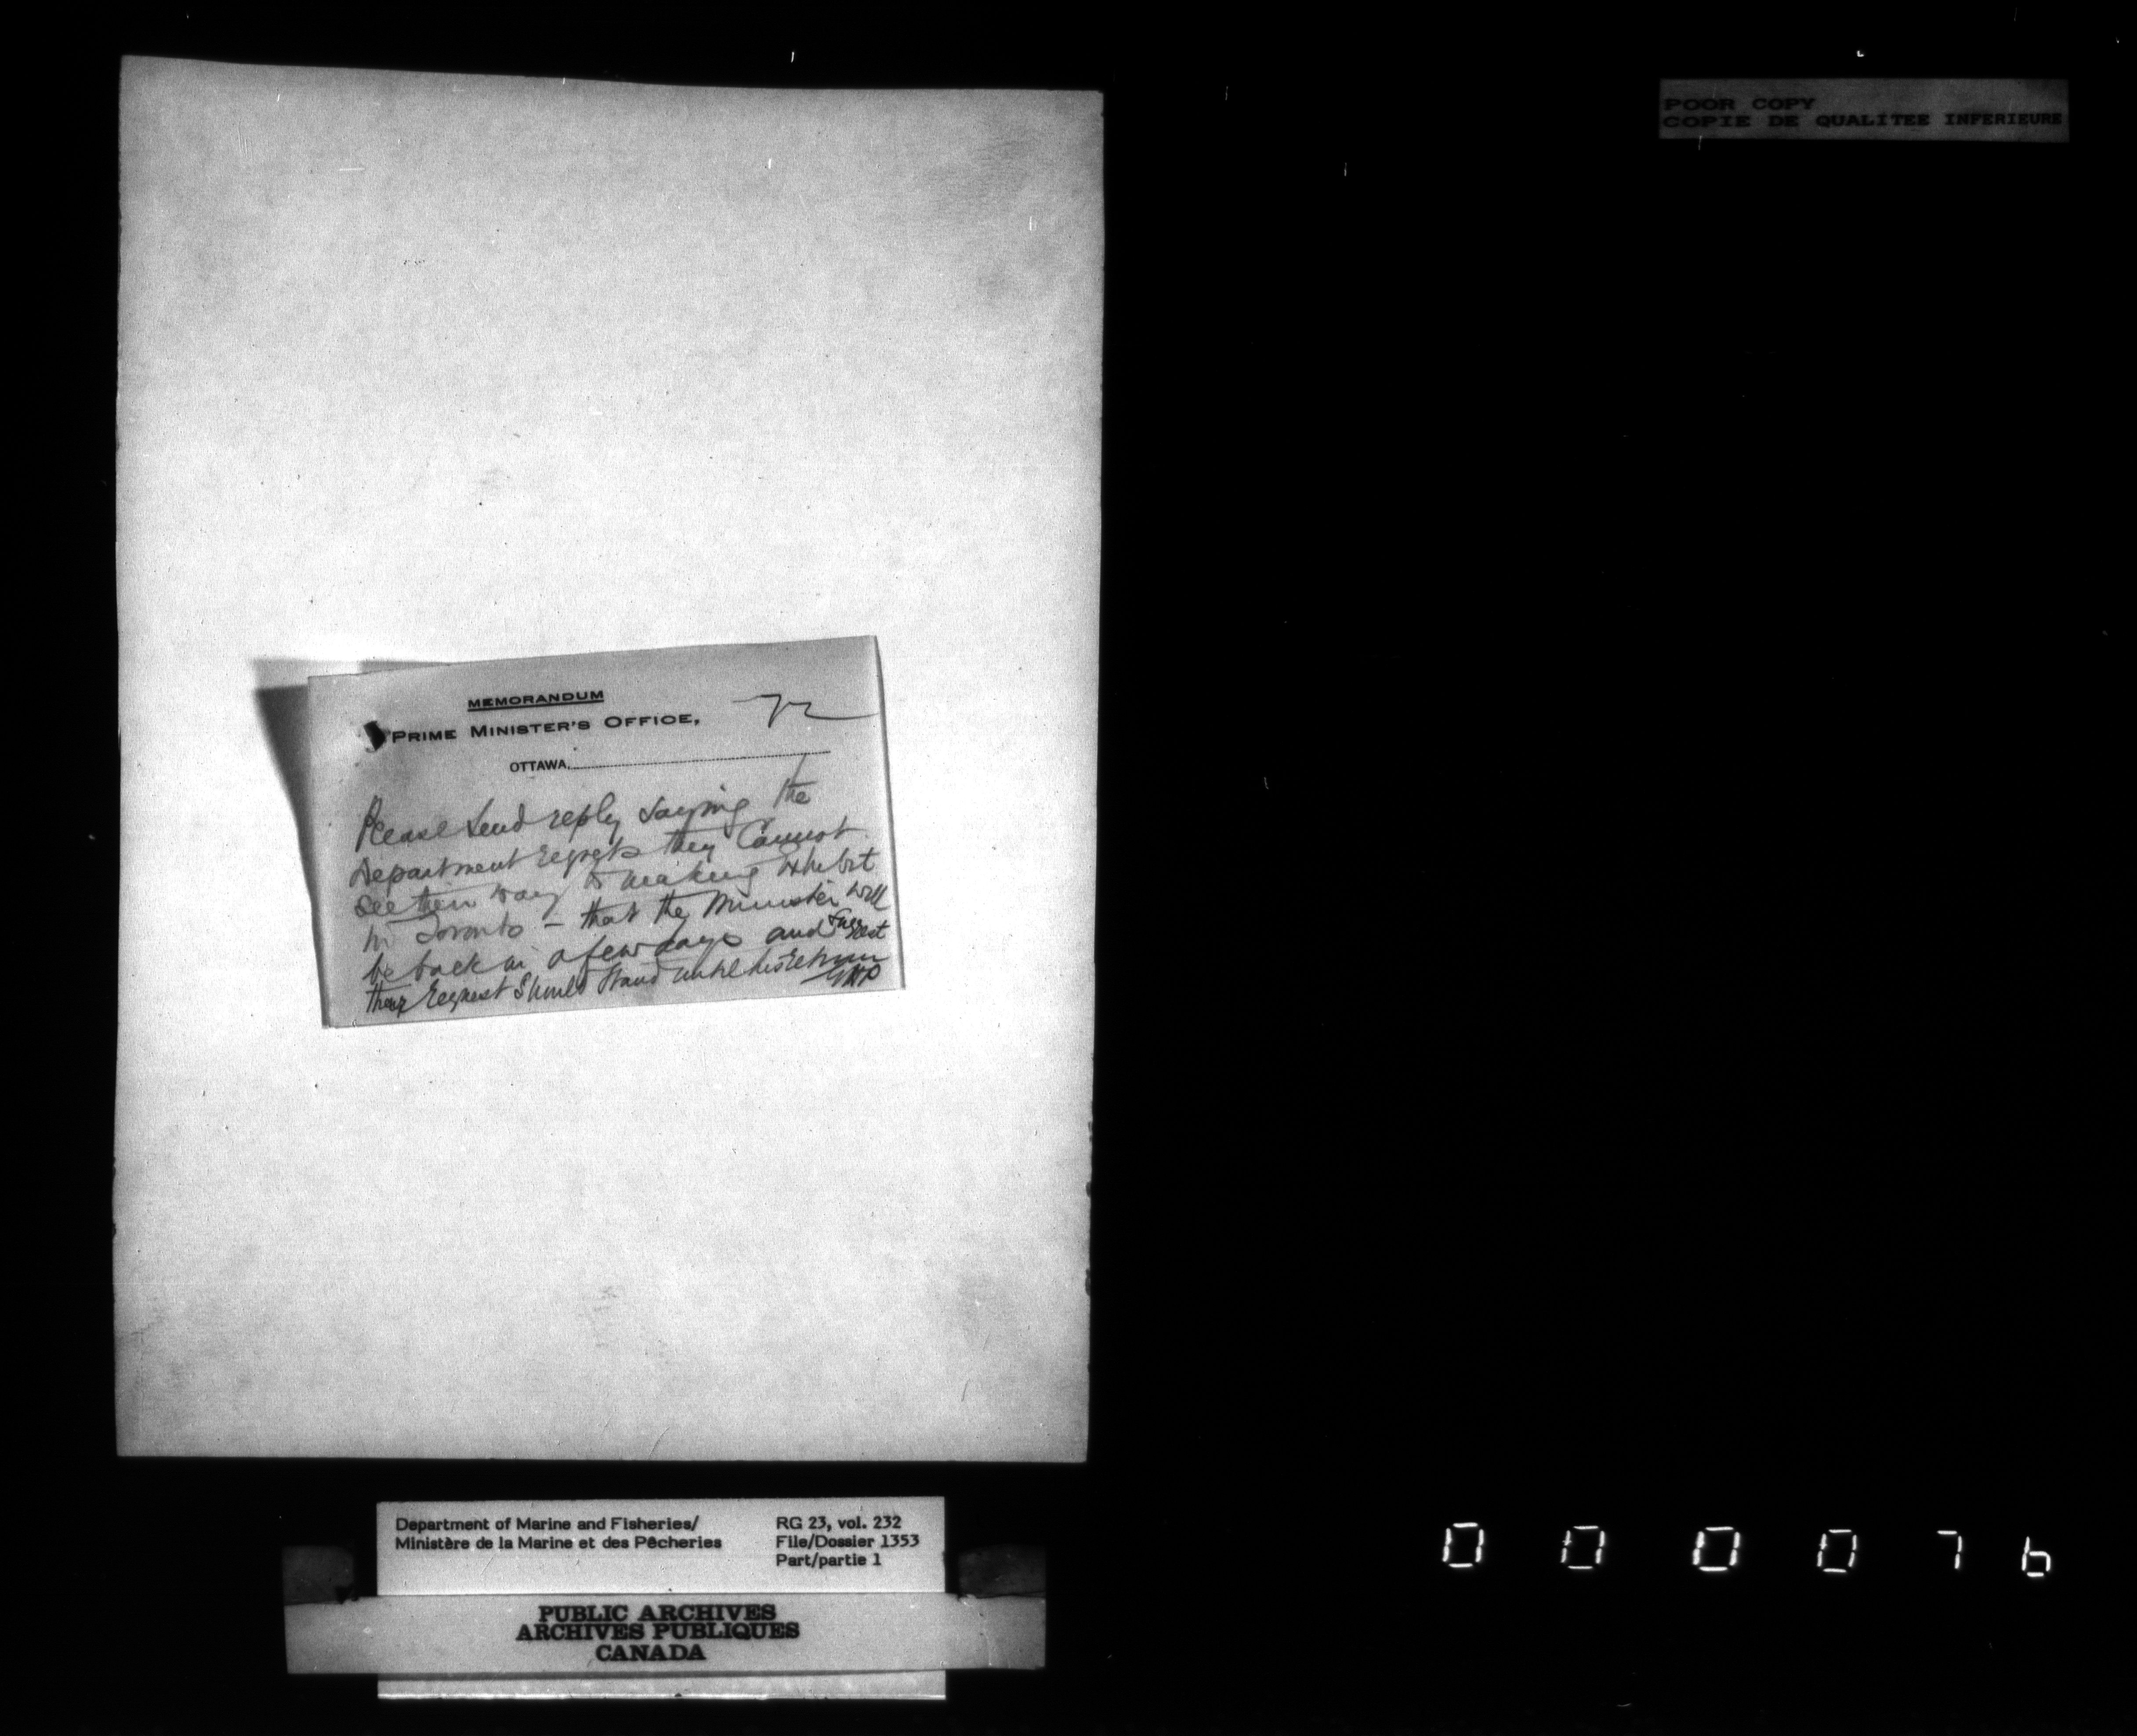 POOR COPY
COPIE DE QUALITEE INFERIEURE
MEMORANDUM
72
PRIME MINISTER'S OFFICE,
OTTAWA,
Please send reply saying the
Department regrets they cannot
see their way to making exhibit
in Toronto – that the Minister will
be back in a few days and suggest
their request should stand until his return
Department of Marine and Fisheries/
Ministère de la Marine et des Pêcheries
RG 23, vol. 232
File/Dossier 1353
Part/partie 1
PUBLIC ARCHIVES
ARCHIVES PUBLIQUES
CANADA
000076